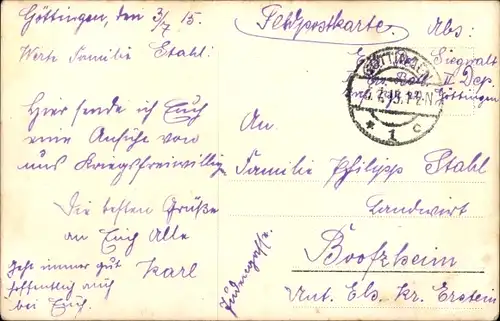 Göttingen, den 3/7 15.
Werte Familie Stahl:
Hier sende ich Euch
eine Ansicht von
uns Kriegsfreiwillig
Die besten Grüße
an Euch Alle
Karl
Geht immer gut
hoffentlich auch
bei Euch.
Feldpostkarte.
Abs:
Siegwalt
II Dep.
Göttingen
1 c
An
Familie Philipp Stahl
Landwirt
Boofzheim
Unt. Els. Kr. Erstein
Judengasse.